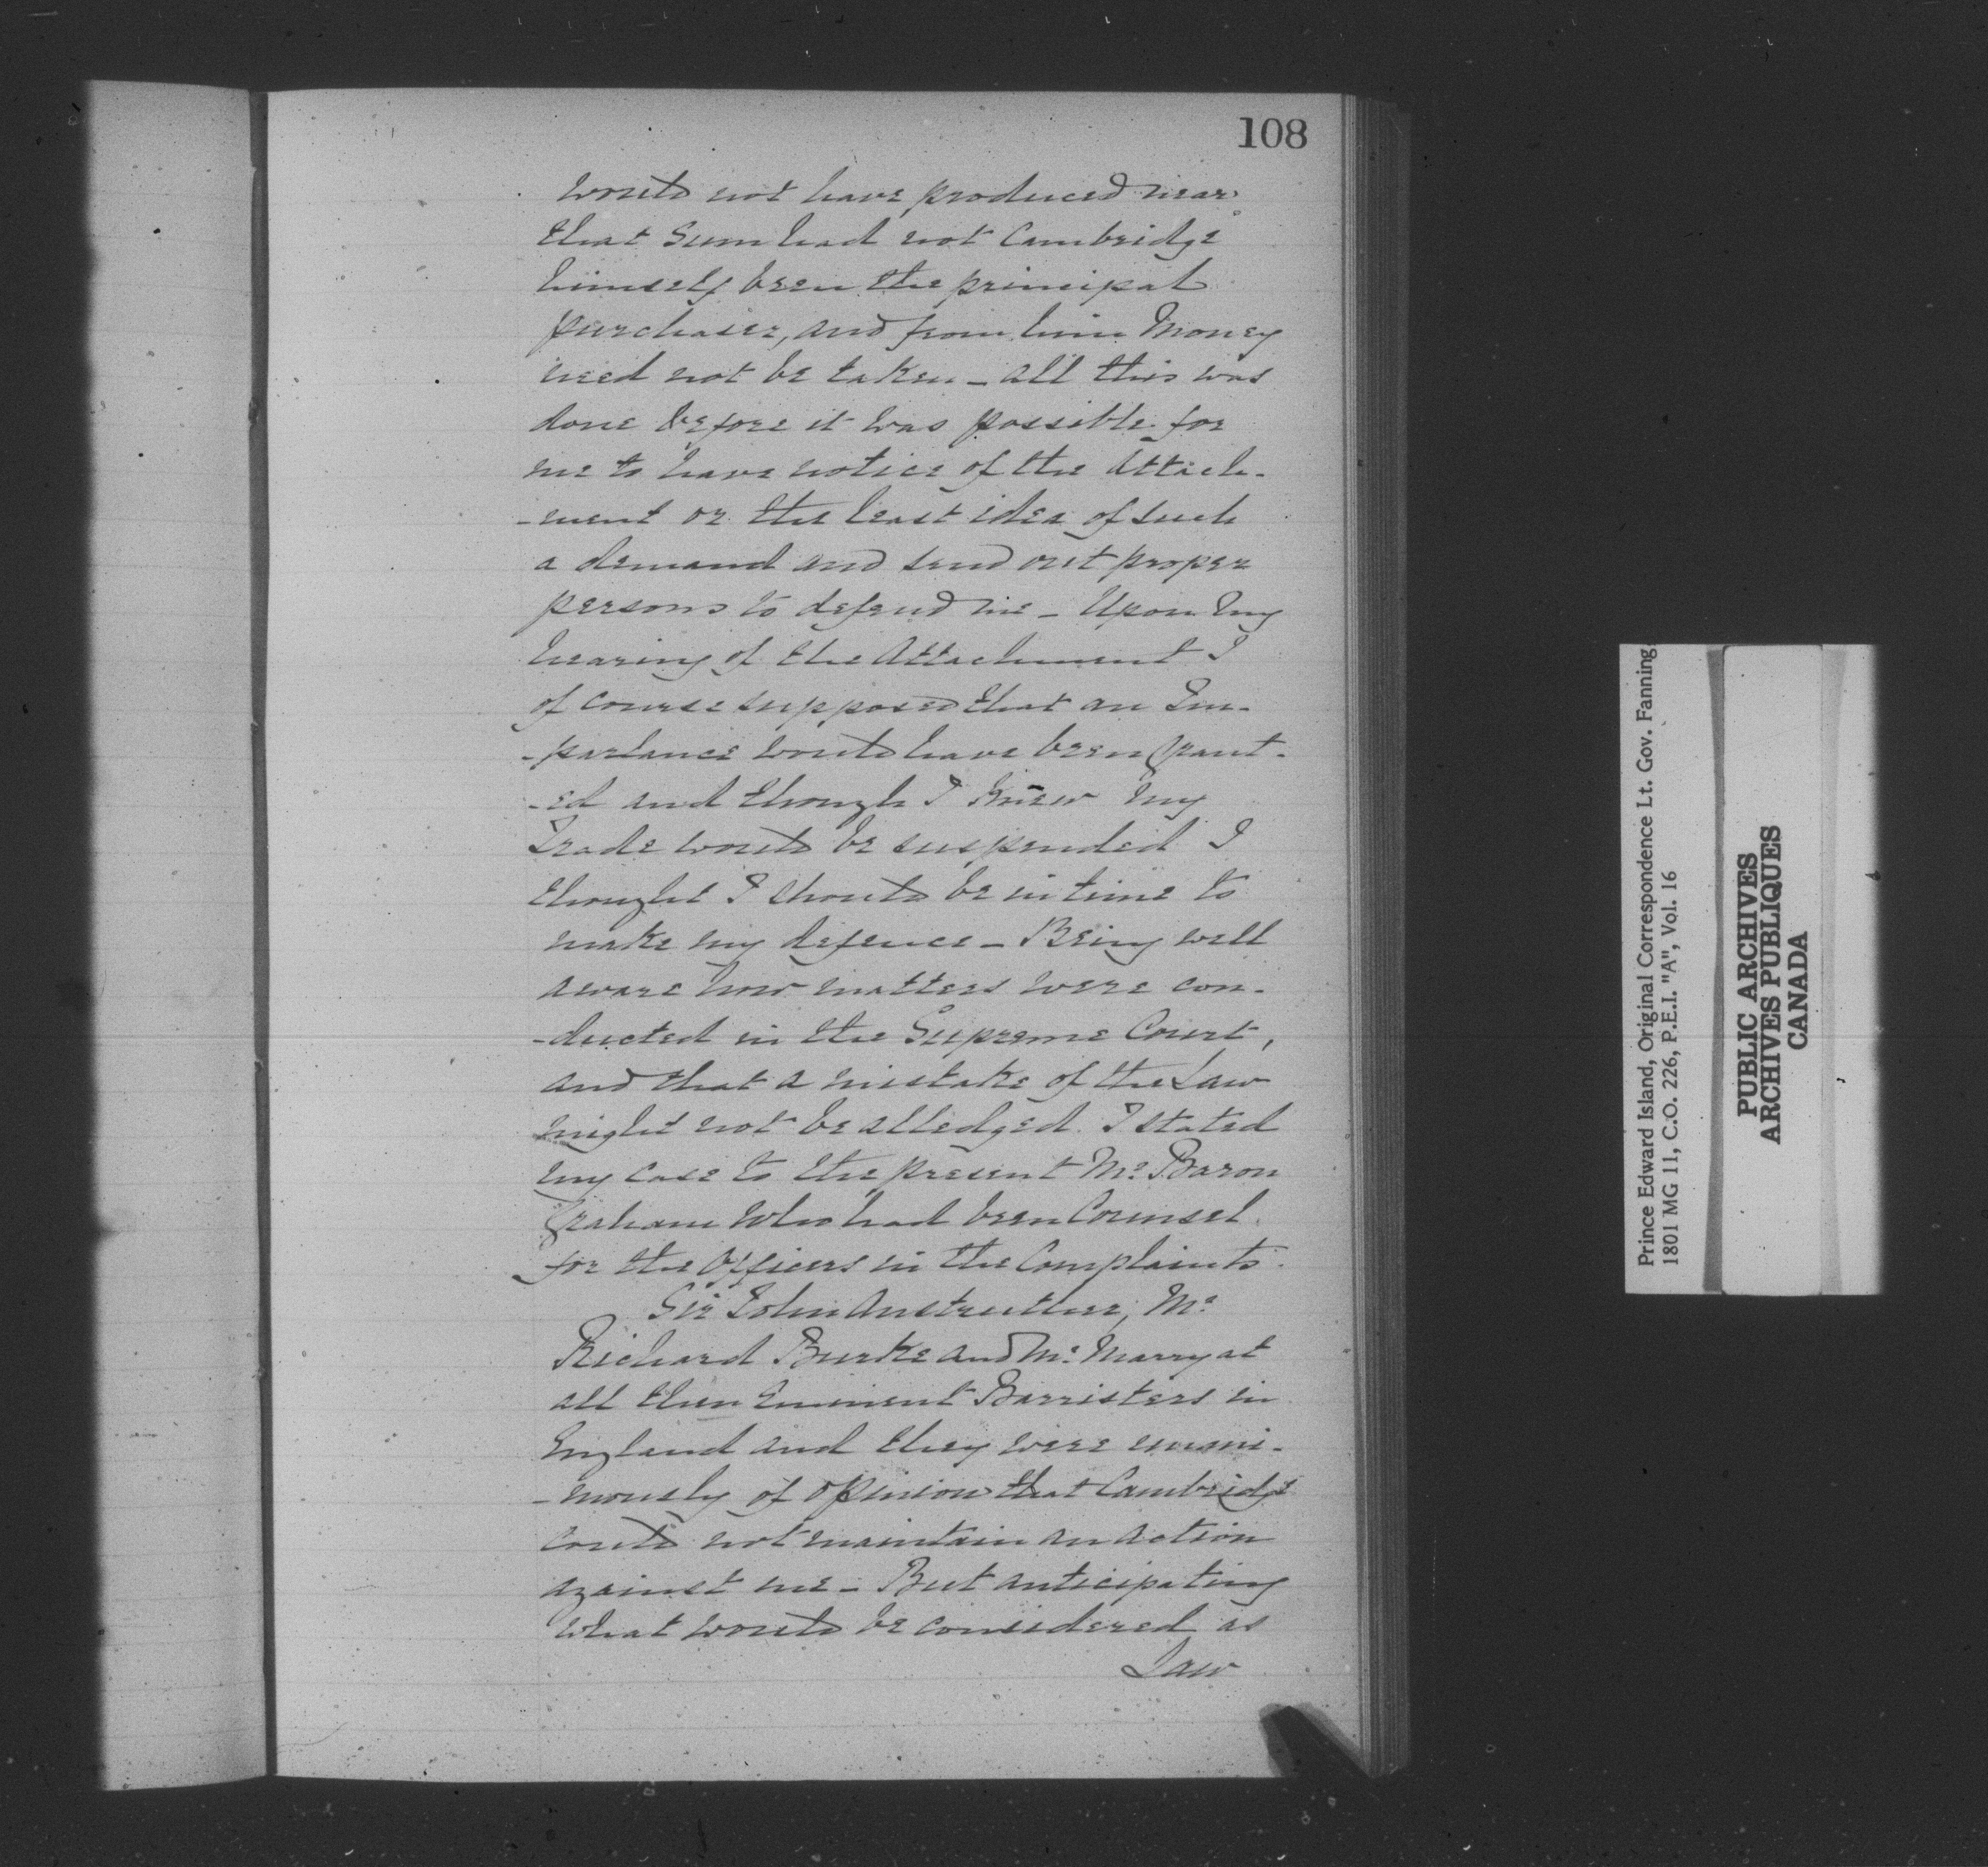 108
would not have produced near
that Sum had not Cambridge
himself been the principal
purchaser, and from him Money
need not be taken - all this was
done before it was possible for
me to have notice of the Attach-
-ment or the least idea of such
a demand and send out proper
persons to defend me - Upon my
hearing of the Attachment I
of course supposed that an Im-
-parlance would have been grant-
-ed and though I knew my
Trade would be suspended I
thought I should be in time to
make my defence - Being well
aware how matters were con-
-ducted in the Supreme Court,
and that a mistake of the Law
might not be alledged. I stated
my case to the present Mr. Baron
Graham who had been Counsel
for the Officers in the Complaints.
Sir John Anstruther, Mr.
Richard Burke and Mr. Marryat
all then eminent Barristers in
England and they were unani-
-mously of opinion that Cambridge
could not maintain an action
against me - But anticipating
what would be considered as
Law
Prince Edward Island, Original Correspondence Lt. Gov. Fanning
1801 MG 11, C.O. 226, P.E.I. "A", Vol. 16
PUBLIC ARCHIVES
ARCHIVES PUBLIQUES
CANADA